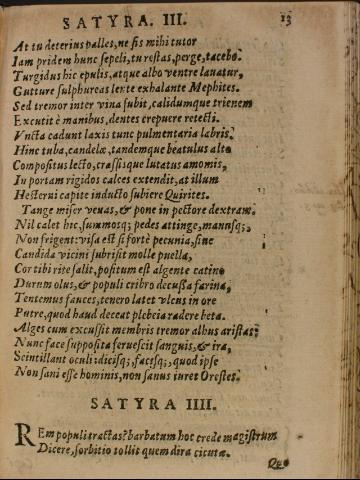 SATYRA. III. 13
At tu deterius palles, ne sis mihi tutor
Iam pridem hunc sepeli, tu restas, perge, tacebo.
Turgidus hic epulis, atque albo ventre lauatur,
Gutture sulphureas lente exhalante Mephites.
Sed tremor inter vina subit, calidumque trienem
Excutit è manibus, dentes crepuere retecti.
Vncta cadunt laxis tunc pulmentaria labris.
Hinc tuba, candelæ, tandemque beatulus alto
Compositus lecto, crassisque lutatus amomis,
In portam rigidos calces extendit, at illum
Hesterni capite inducto subiere Quirites.
Tange miser venas, & pone in pectore dextram.
Nil calet hic, summosq; pedes attinge, manusq;,
Non frigent: visa est si fortè pecunia, siue
Candida vicini subrisit molle puella,
Cor tibi rite salit, positum est algente catino
Durum olus, & populi cribro decussa farina,
Tentemus fauces, tenero latet vlcus in ore
Putre, quod haud deceat plebeia radere beta.
Alges cum excussit membris tremor albus aristas:
Nunc face supposita feruescit sanguis, & ira,
Scintillant oculi: dicisq;, facisq;, quod ipse
Non sani esse hominis, non sanus iuret Orestes.
SATYRA IIII.
REm populi tractas? barbatum hoc crede magistrum
Dicere, sorbitio tollit quem dira cicutæ.
Quo